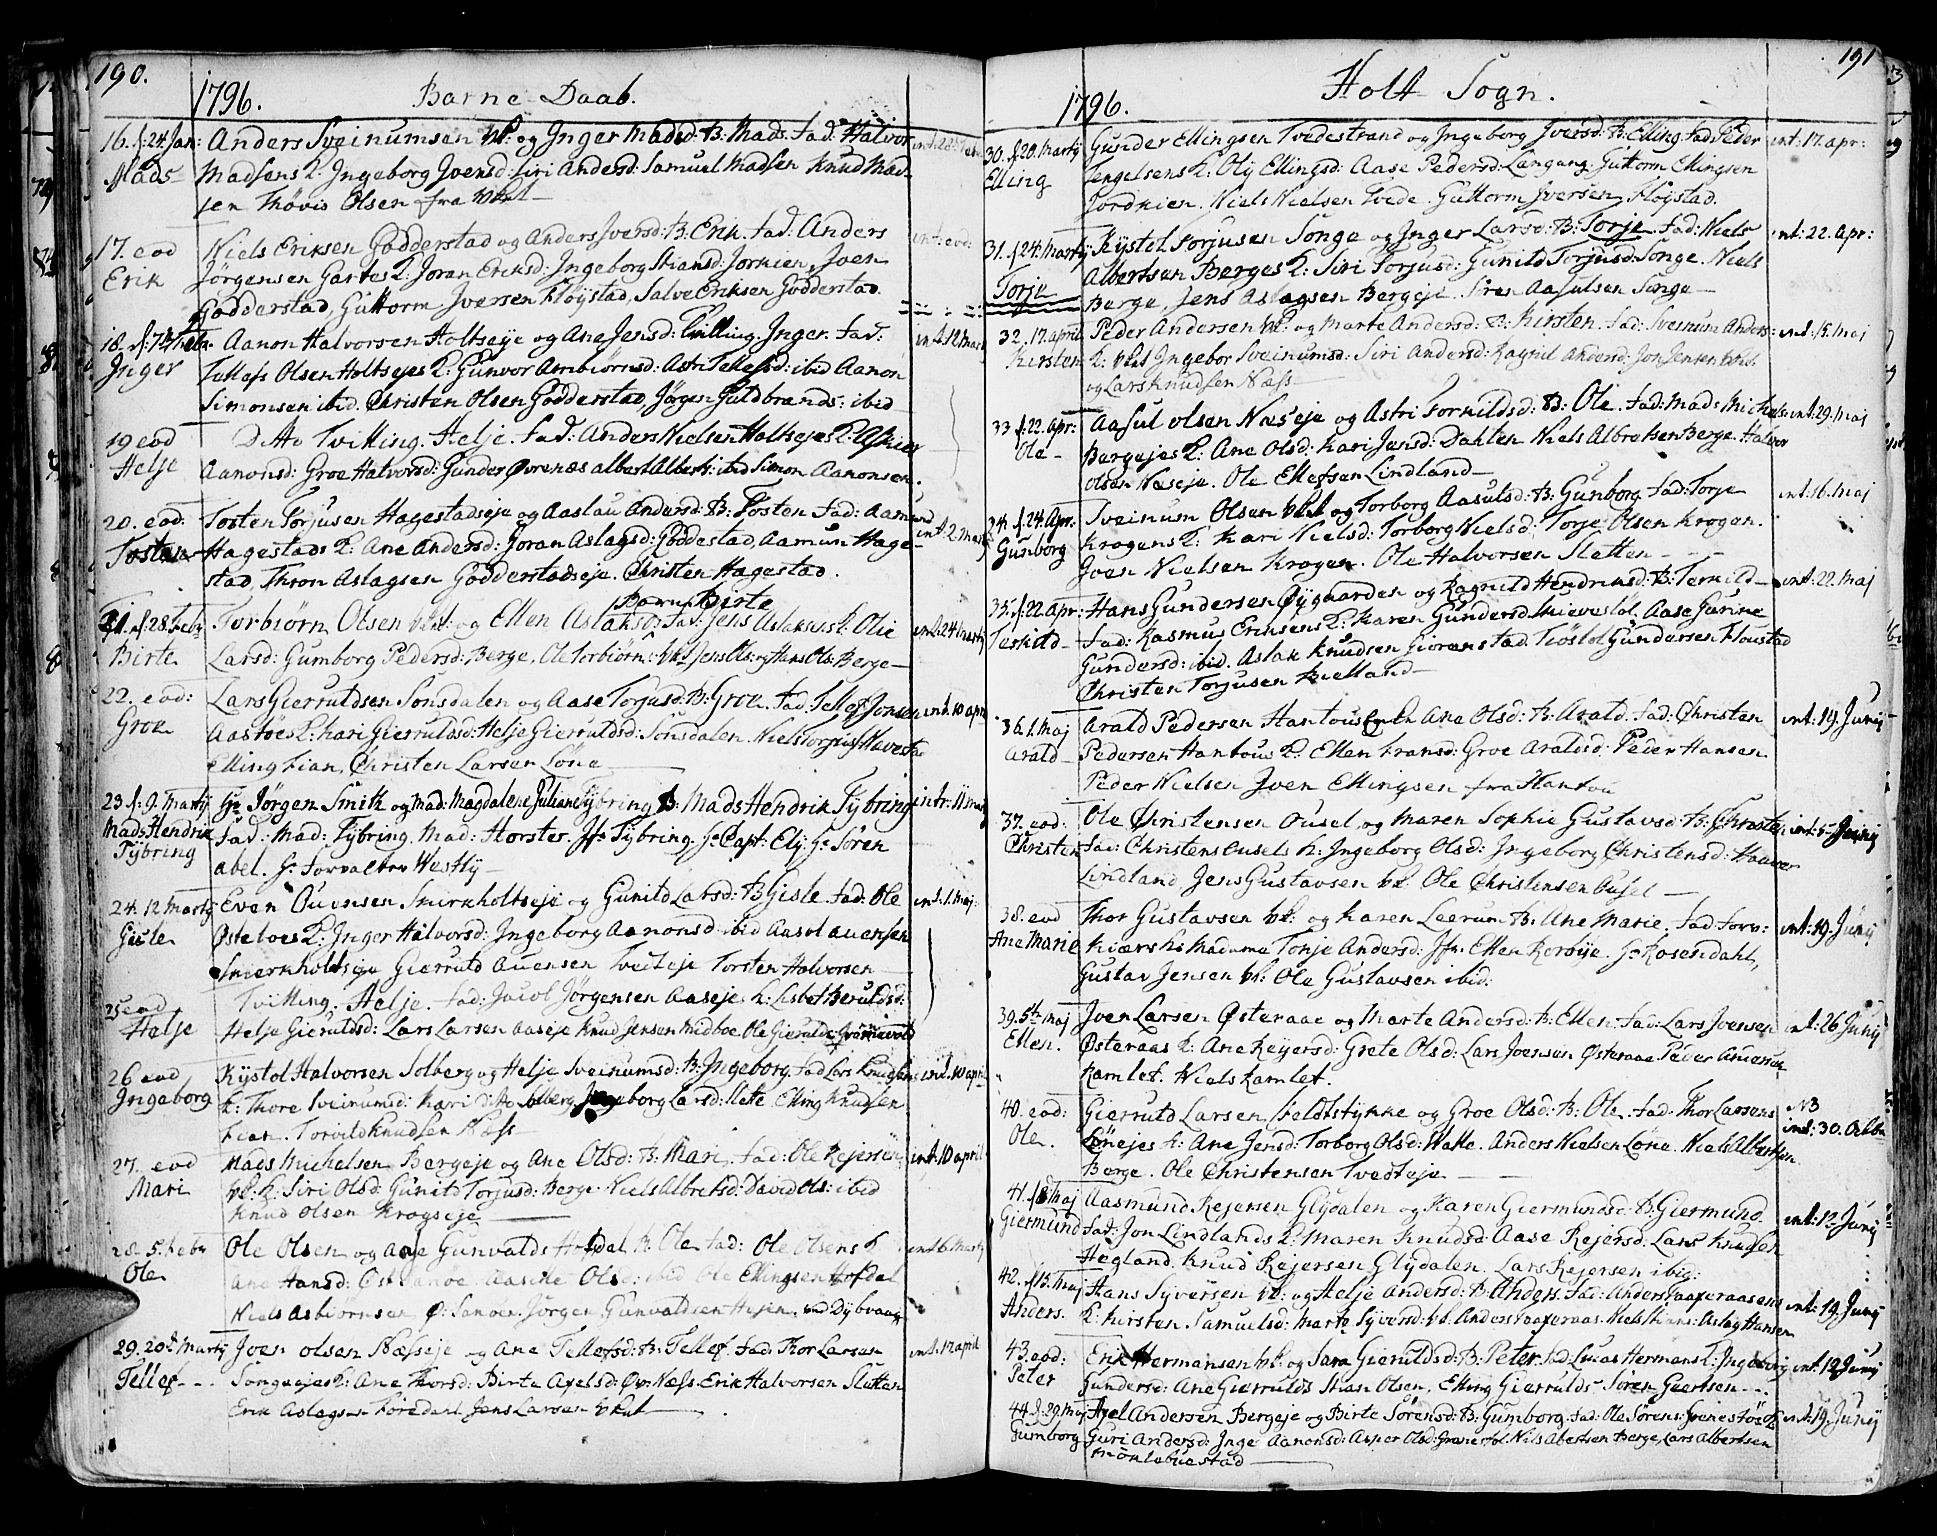 190.
1796. Barne Daab.
16. f. 24. Jan: Anders Sveinumsen Vkl: og Inger Madsd: B: Mads. Fad: Halvor
Mads Madsens K: Ingeborg Jvensd: Siri Andersd: Samuel Madsen Knud Mad-
sen Thovis Olsen fra Vkl
17. eod Niels Eriksen Godderstad og Anders Jversd: B: Erik. Fad: Anders int: eod:
Erik Jørgensen Gartes K: Joran Eriksd: Ingeborg Stiansd: Jorkien, Jven
Godderstad, Guttorm Jversen Fløystad, Salve Eriksen Godderstad.
18. f. 7 Febr. Aanon Halvorsen Holtseje og Ane Jensd: Tvilling. Inger. Fad: int. 12 Mart
Inger Tellefs Olsen Holtsejes K: Gunvor Arnbiørnsd: Astri Tellefsd: ibid Aanon
Simonsen ibid. Christen Olsen Godderstad, Jørgen Guldbrands: ibid
19 eod Ditto Tvilling. Helje. Fad: Anders Nielsen Holtsejes K:
Helje Aanonsd: Groe Halvorsd: Gunder Øvrenæs Albert Albert: ibid Simon Aanonsen.
20. eod: Tosten Torjusen Hagestadseje og Aaslau Andersd: B: Tosten Fad: Aamund int. 2 Marty
Tosten Hagestads K: Ane Andersd: Joran Aslagsd: Goddestad, Aamun Hage-
stad, Thron Aslagsen Godderstadseje. Christen Hagestad.
Barn: Birte
21. f. 28. Febr Torbiørn Olsen Vkl: og Ellen Aslaksd: Fad: Jens Aslaksens K: Olie int: 24 Marty
Birte Larsd: Gumborg Pedersd: Berge, Ole Torbiørn: Vkl Jens Ols: og Hans Ols: Berge
22. eod: Lars Gierruldsen Sonsdalen og Aase Torjusd: B: Groe. Fad: Tellef Jonsen int. 10 apr
Groe Aastøes K: Kari Gierruldsd: Helje Gierruldsd: Sonsdalen. Niels Torjus:
Elling Fian, Christen Larsen Løne
23 f. 9. Marty Hr Jørgen Smith og Mad: Magdalene Juliane Tybring B: Mads Hendrik Tybring intr: 11 Mart
Mads Hendrik Fad: Mad: Tybring, Mad: Horster. Jfr Tybring. Hr Capt: Ely. Hr Søren
Tybring abel. Hr Forvalter Westly
24. 12 Marty Even Ouvnsen Smirholtseje og Gunild Larsd: B: Gisle. Fad: Ole int. 1. Maj:
Gisle Østeloes K: Inger Halvorsd: Ingeborg Aanonsd: ibid Aasol Auensen
Smierholtseje Gierruld Auensen Tvedteje Torsten Halvorsen
25 eod Tvilling. Helje. Fad: Jacob Jørgensen Aaseje, K: Lisbet Beruldsd:
Helje Helje Gieruldsd: Lars Larsen Aaseje Knud Jensen Midboe Ole Gieruldsen
26 eod Kystol Halvorsen Solberg og Helje Sveinumsd: B: Ingeborg. Fad Lars Knudsens int. 10 april
Ingeborg K: Thore Sveinumsd: Kari Ditto Solberg Ingeborg Larsd: Slete Elling Knudsen
Fian. Torvild Knudsen Næss
27. eod Mads Michelsen Bergeje og Ane Olsd: B: Mari. Fad: Ole Rejersen int. 10 april
Mari Vkl: K: Siri Olsd: Gunild Torjusd: Berge Niels Albretsd: David Ols: ibid
Knud Olsen Krogseje
28. 5. Febr Ole Olsen og Ane Gunvalds Hofdal B: Ole Fad: Ole Olsens K int 6 Marty
Ole Ane Hansd: Østsanøe. Aasille Olsd: ibid Ole Ellingsen Hofdal
Niels Asbiørnsen Ø: Sanøen. Jørgen Gunvaldsen Hesen, ved Dybvaag
29. 20de Marty Joen Olsen Næsseje og Ane Tellefsd: B: Tellef. Fad Thor Larsen int. 17 april
Tellef Songeejes K: Ane Thorsd: Birte Axelsd: Øv: Næss. Erik Halvorsen Sletten
Erik Aslagsen Foredahl, Jens Larsen Vkl
191
1796. Holt Sogn.
30. f. 20. Marty Gunder Ellingsen Tvedestrand og Ingeborg Jversd: B: Elling. Fad: Peder int. 17. apr:
Elling Tengelsens K: Oly Ellingsd: Aase Pedersd: Langang. Guttorm Ellingsen
Jordkien. Niels Nielsen Tvede. Guttorm Jversen Fløystad.
31. f. 24. Marty Kystol Torjusen Songe og Inger Larsd: B: Torje. Fad: Niels int: 22. Apr:
Torje Albertsen Berges K: Siri Torjusd: Gunild Torjusd: Songe. Niels
Berge, Jens Aslagsen Bergeje. Søren Aasulsen Songe
32, 17. april Peder Andersen Vkl: og Marte Andersd: B: Kirsten. Fad: Sveinum Anders: int. 15. Maj
Kirsten K: Vkls Ingebor Sveinumsd: Siri Andersd: Ragnil Andersd: Jon Jensen Vkl.
og Lars Knudsen Næss
33 f. 22. Apr: Aasul Olsen Næseje og Astri Torkildsd: B: Ole. Fad: Mads Michels: int. 29. Maj
Ole Bergejes K: Ane Olsd: Kari Jensd: Dahlen Niels Albretsen Berge. Halvor
Olsen Næseje. Ole Ellefsen Lindland
34. f. 24. Apr: Sveinum Olsen Vkl og Torborg Aasulsd: B: Gunborg Fad: Torje int: 16. Maj
Gunborg Krogens K: Kari Nielsd: Torborg Nielsd: Torje Olsen Krogen.
Joen Nielsen Krogen. Ole Halvorsen Sletten
35. f. 22. apr: Hans Gundersen Nygaarden og Ragnild Hendriksd: B: Terkild int: 22. Maj
Terkild Fad: Rasmus Eriksens K: Karen Gundersd: Aase Gurine
Gundersd: ibid. Aslak Knudsen Gioranstad. Tiøstol Gundersen Floustad
Christen Torjusen Kielland
36. 1. Maj Arald Pedersen Hantou og Ane Olsd: B: Arald. Fad: Christen int: 19. Junij
Arald Pedersen Hantous K: Ellen Fransd: Groe Araldsd: Peder Hansen
Peder Nielsen Jven Ellingsen fra Hantou
37. eod: Ole Christensen Ousel og Maren Sophie Gustavsd: B: Christen int. 5 Junij
Christen Fad: Christens Ousels K: Ingeborg Olsd: Ingeborg Christensd: Haaver
Lindland Jens Gustavsen Vkl: Ole Christensen Ousel
38. eod Thor Gustavsen Vkl: og Karen Leerum B: Ane Marie. Fad Forv: int. 19. Junij
Ane Marie Kiærs K: Madame Tonje Andersd: Jfr. Ellen Kerbye. Hr Rosendahl,
Gustav Jensen Vkl: Ole Gustavsen ibid:
39. 5te Maj Joen Larsen Østeraae og Marte Andersd: B: Ellen. Fad: Lars Joensen int: 26 Junij
Ellen. Østeraas K: Ane Reyersd: Grete Olsd: Lars Joensen Østeraae Peder Andersen
Kamlet. Niels Kamlet.
40. eod: Gierruld Larsen Feldtstykke og Groe Olsd: B: Ole. Fad: Thor Larsens NB
Ole. Lønejes K: Ane Jensd: Torborg Olsd: Watle. Anders Nielsen Løne. Niels Albertsen int: 30. Octbr
Berge. Ole Christensen Tvedteje
41. f. 8 Maj Aasmund Rejersen Glydalen og Karen Giermundsd: B: Giermund int: 12 Junij
Giermund Fad: Jon Lindlands K: Maren Knudsd: Aase Rejersd: Lars Knudsen
Hegland. Knud Rejersen Glydalen. Lars Rejersen ibid:
42. f. 15. Maj Hans Syversen Vkl: og Helje Andersd: B: Anders. Fad: Anders int: 19. Junij
Anders. K: Kirsten Samuelsd: Marte Syversd: Vkl. Anders Niels Stians: Aslag Hansen
43. eod: Erik Hermansen Vkl: og Sara Gieruldsd: B: Peter. Fad: Lucas Hermans K: Ingeborg int: 12 Junij
Peter Gundersd: Ane Gierrulds Stian Olsen, Elling Gierrulds Søren Geertsen
44. f. 29. Maj Axel Andersen Bergeje og Birte Sørensd: B: Gumborg. Fad: Ole Sørens: K int: 19. Junij
Gumborg Guri Andersd: Inge Aanonsd: Asper Olsd: Niels Abertsen Berge, Lars Albertsen